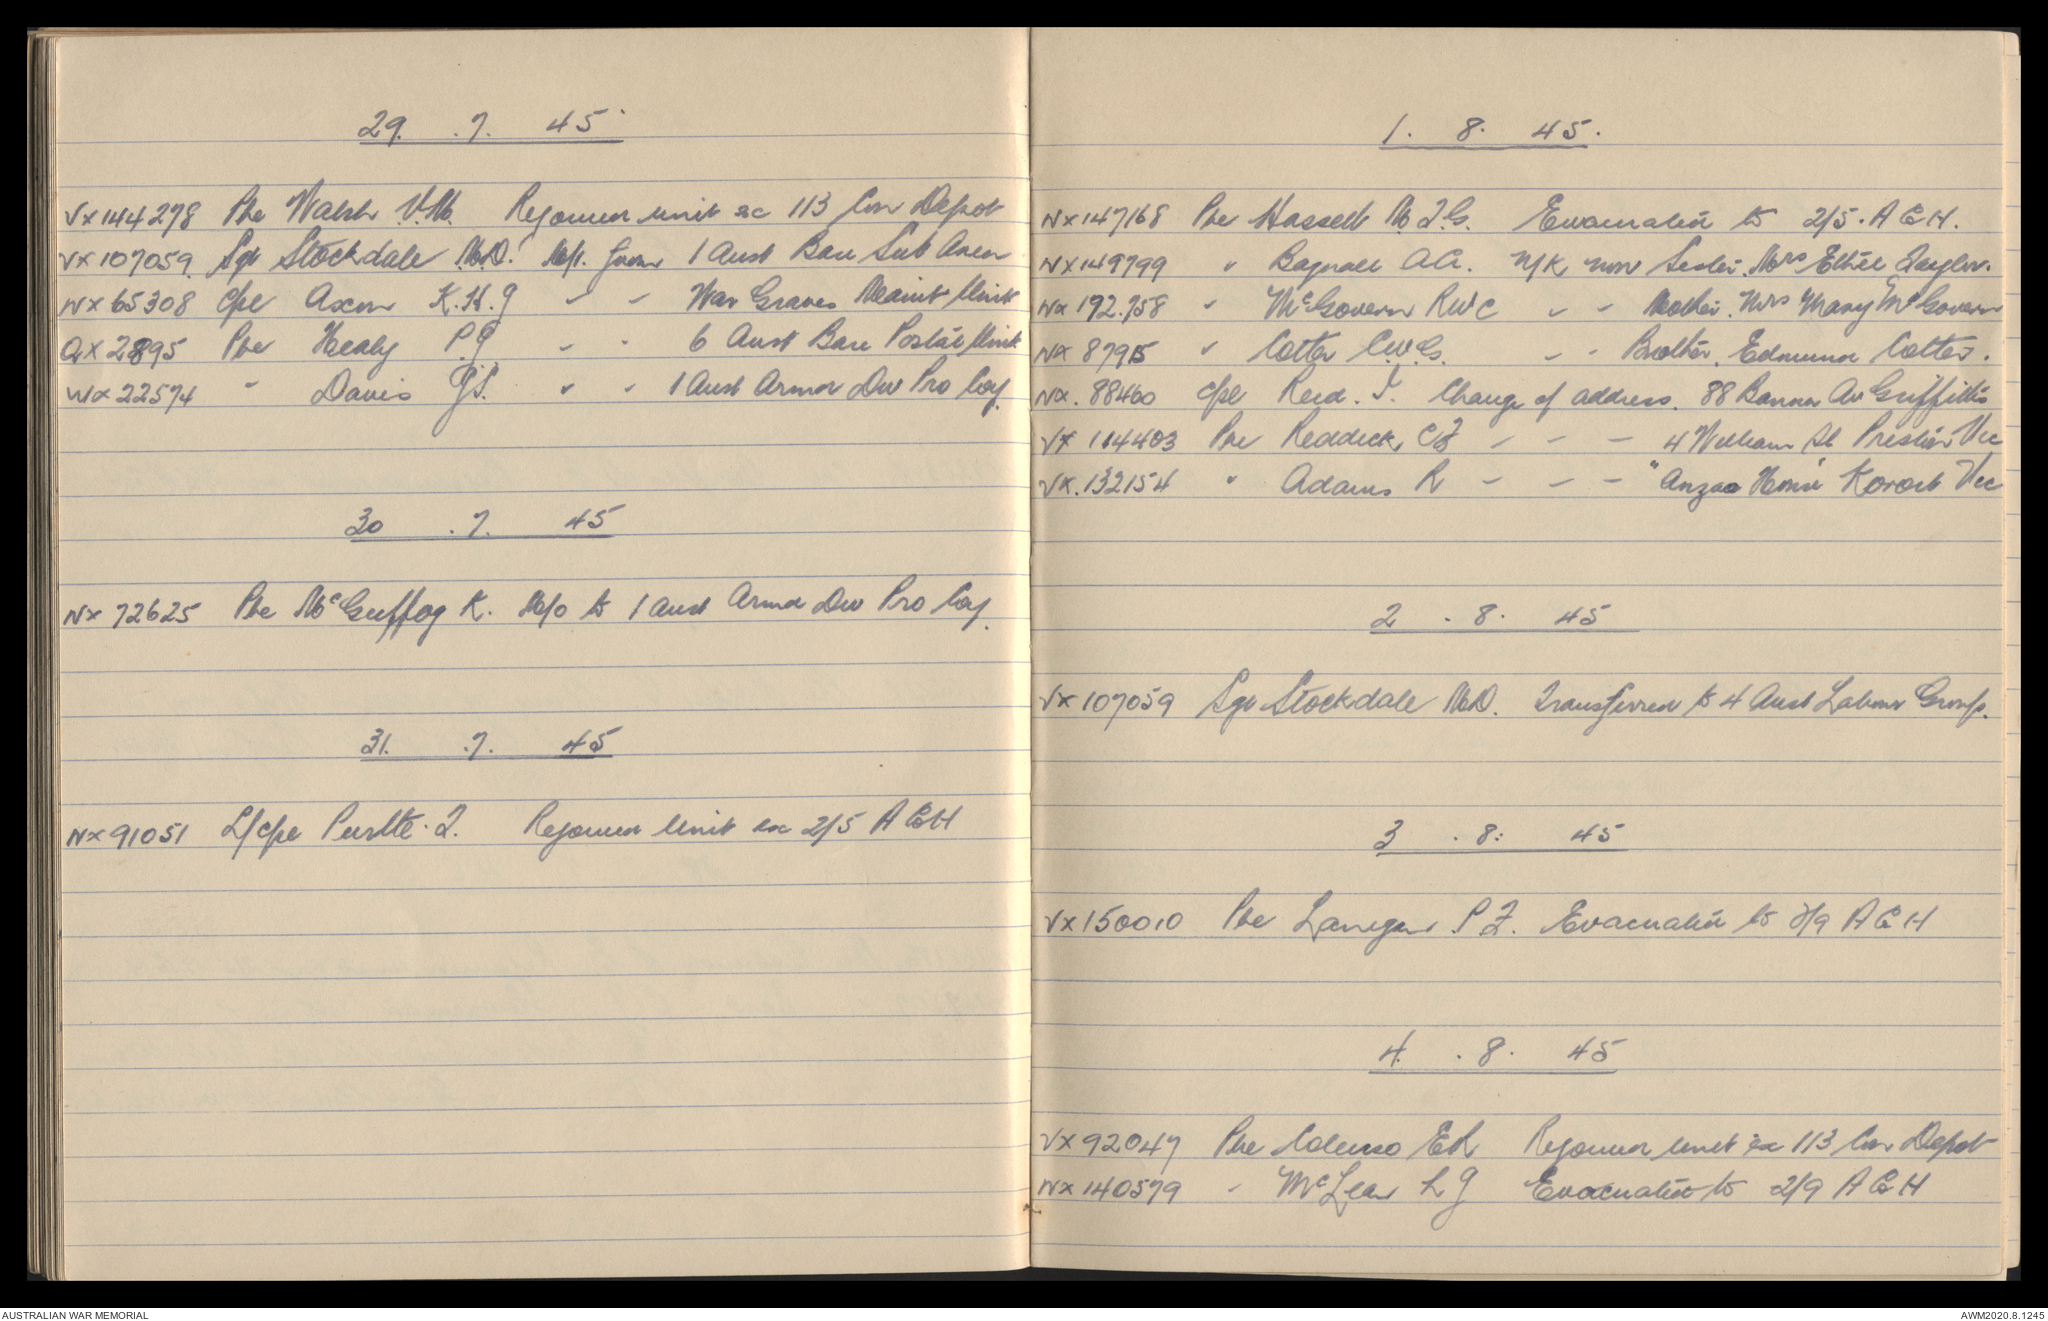 29. .7. 45.
VX144278 Pte Walsh V.M. Rejoined unit ex 113 Con Depot
VX107059. Sgt Stockdale M.D. M/I. from 1 Aust Base Sub Area
NX65308 Cpl Axon K.H.J " " War Graves Maint Unit
QX2895 Pte Healy P.J " " 6 Aust Base Postal Unit
WX22574 " Davis G.S. " " 1 Aust Armd Div Pro Coy.
30 .7. 45
NX72625 Pte McGuffog K. M/O to 1 Aust Armd Div Pro Coy.
31. .7. 45
NX91051 L/Cpl F. Rejoined unit ex 2/5 AGH
1. 8. 45.
NX147168 Pte Hassell M.J.G. Evacuated to 2/5. A G H.
NX149799 " Bagnall A.A. N/K now Sister. Mrs Ethel Taylor.
NX192.758 " McGovern RWC " " Mother. Mrs Mary McGovern
NX87915 " Cotter C.W.G. " " Brother. Edmund Cotter.
NX.88460 Cpl Reid. I. Change of address. 88 Banna Av Griffith
VX114403 Pte Reddick C J " " " 4 William St Preston Vic
VX.132154 " Adams R " " " "Anzac House" Koroit Vic
2 . 8. 45
VX107059 Sgt Stockdale M.D. Transferred to 4 Aust Labour Group.
3 . 8: 45
VX150010 Pte Lanegan P F. Evacuated to 2/9 A G H
4. . 8. 45
VX92047 Pte Colenso E R Rejoined unit ex 113 Con Depot
NX140579 " McLean L J Evacuated to 2/9 A G H
AUSTRALIAN WAR MEMORIAL
AWM2020.8.1245